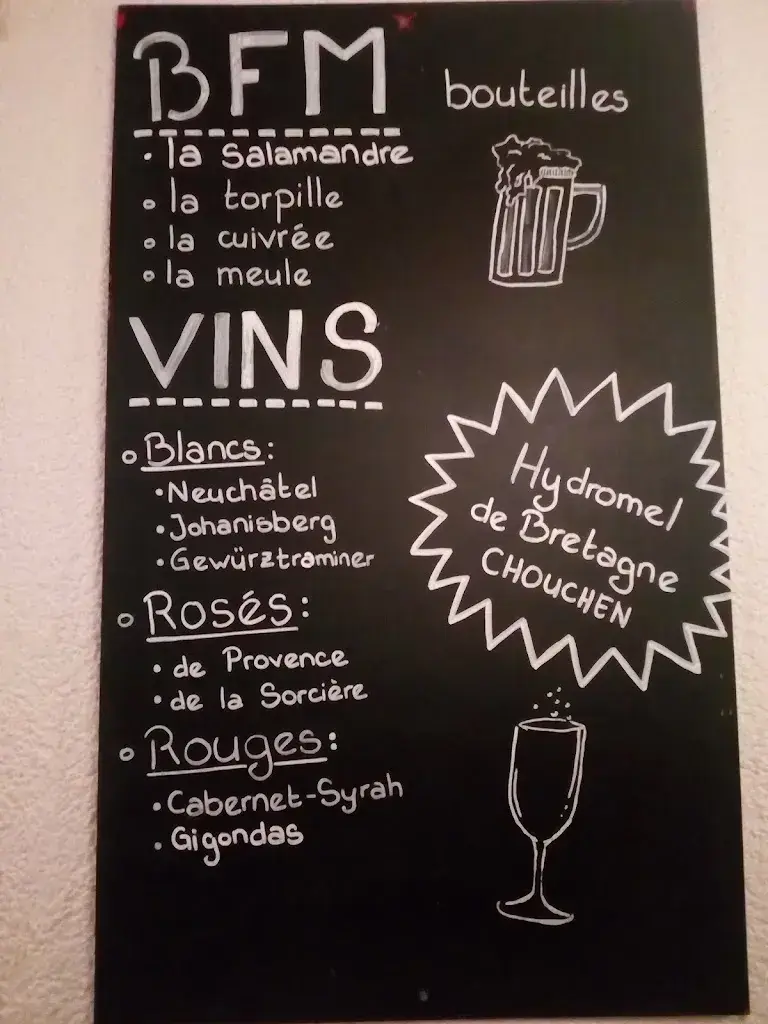 BFM
bouteilles
• la Salamandre
• la torpille
• la cuivrée
• la meule
VINS
• Blancs:
• Neuchâtel
• Johanisberg
• Gewürztraminer
• Rosés:
• de Provence
• de la Sorcière
• Rouges:
• Cabernet-Syrah
• Gigondas
Hydromel
de Bretagne
CHOUCHEN